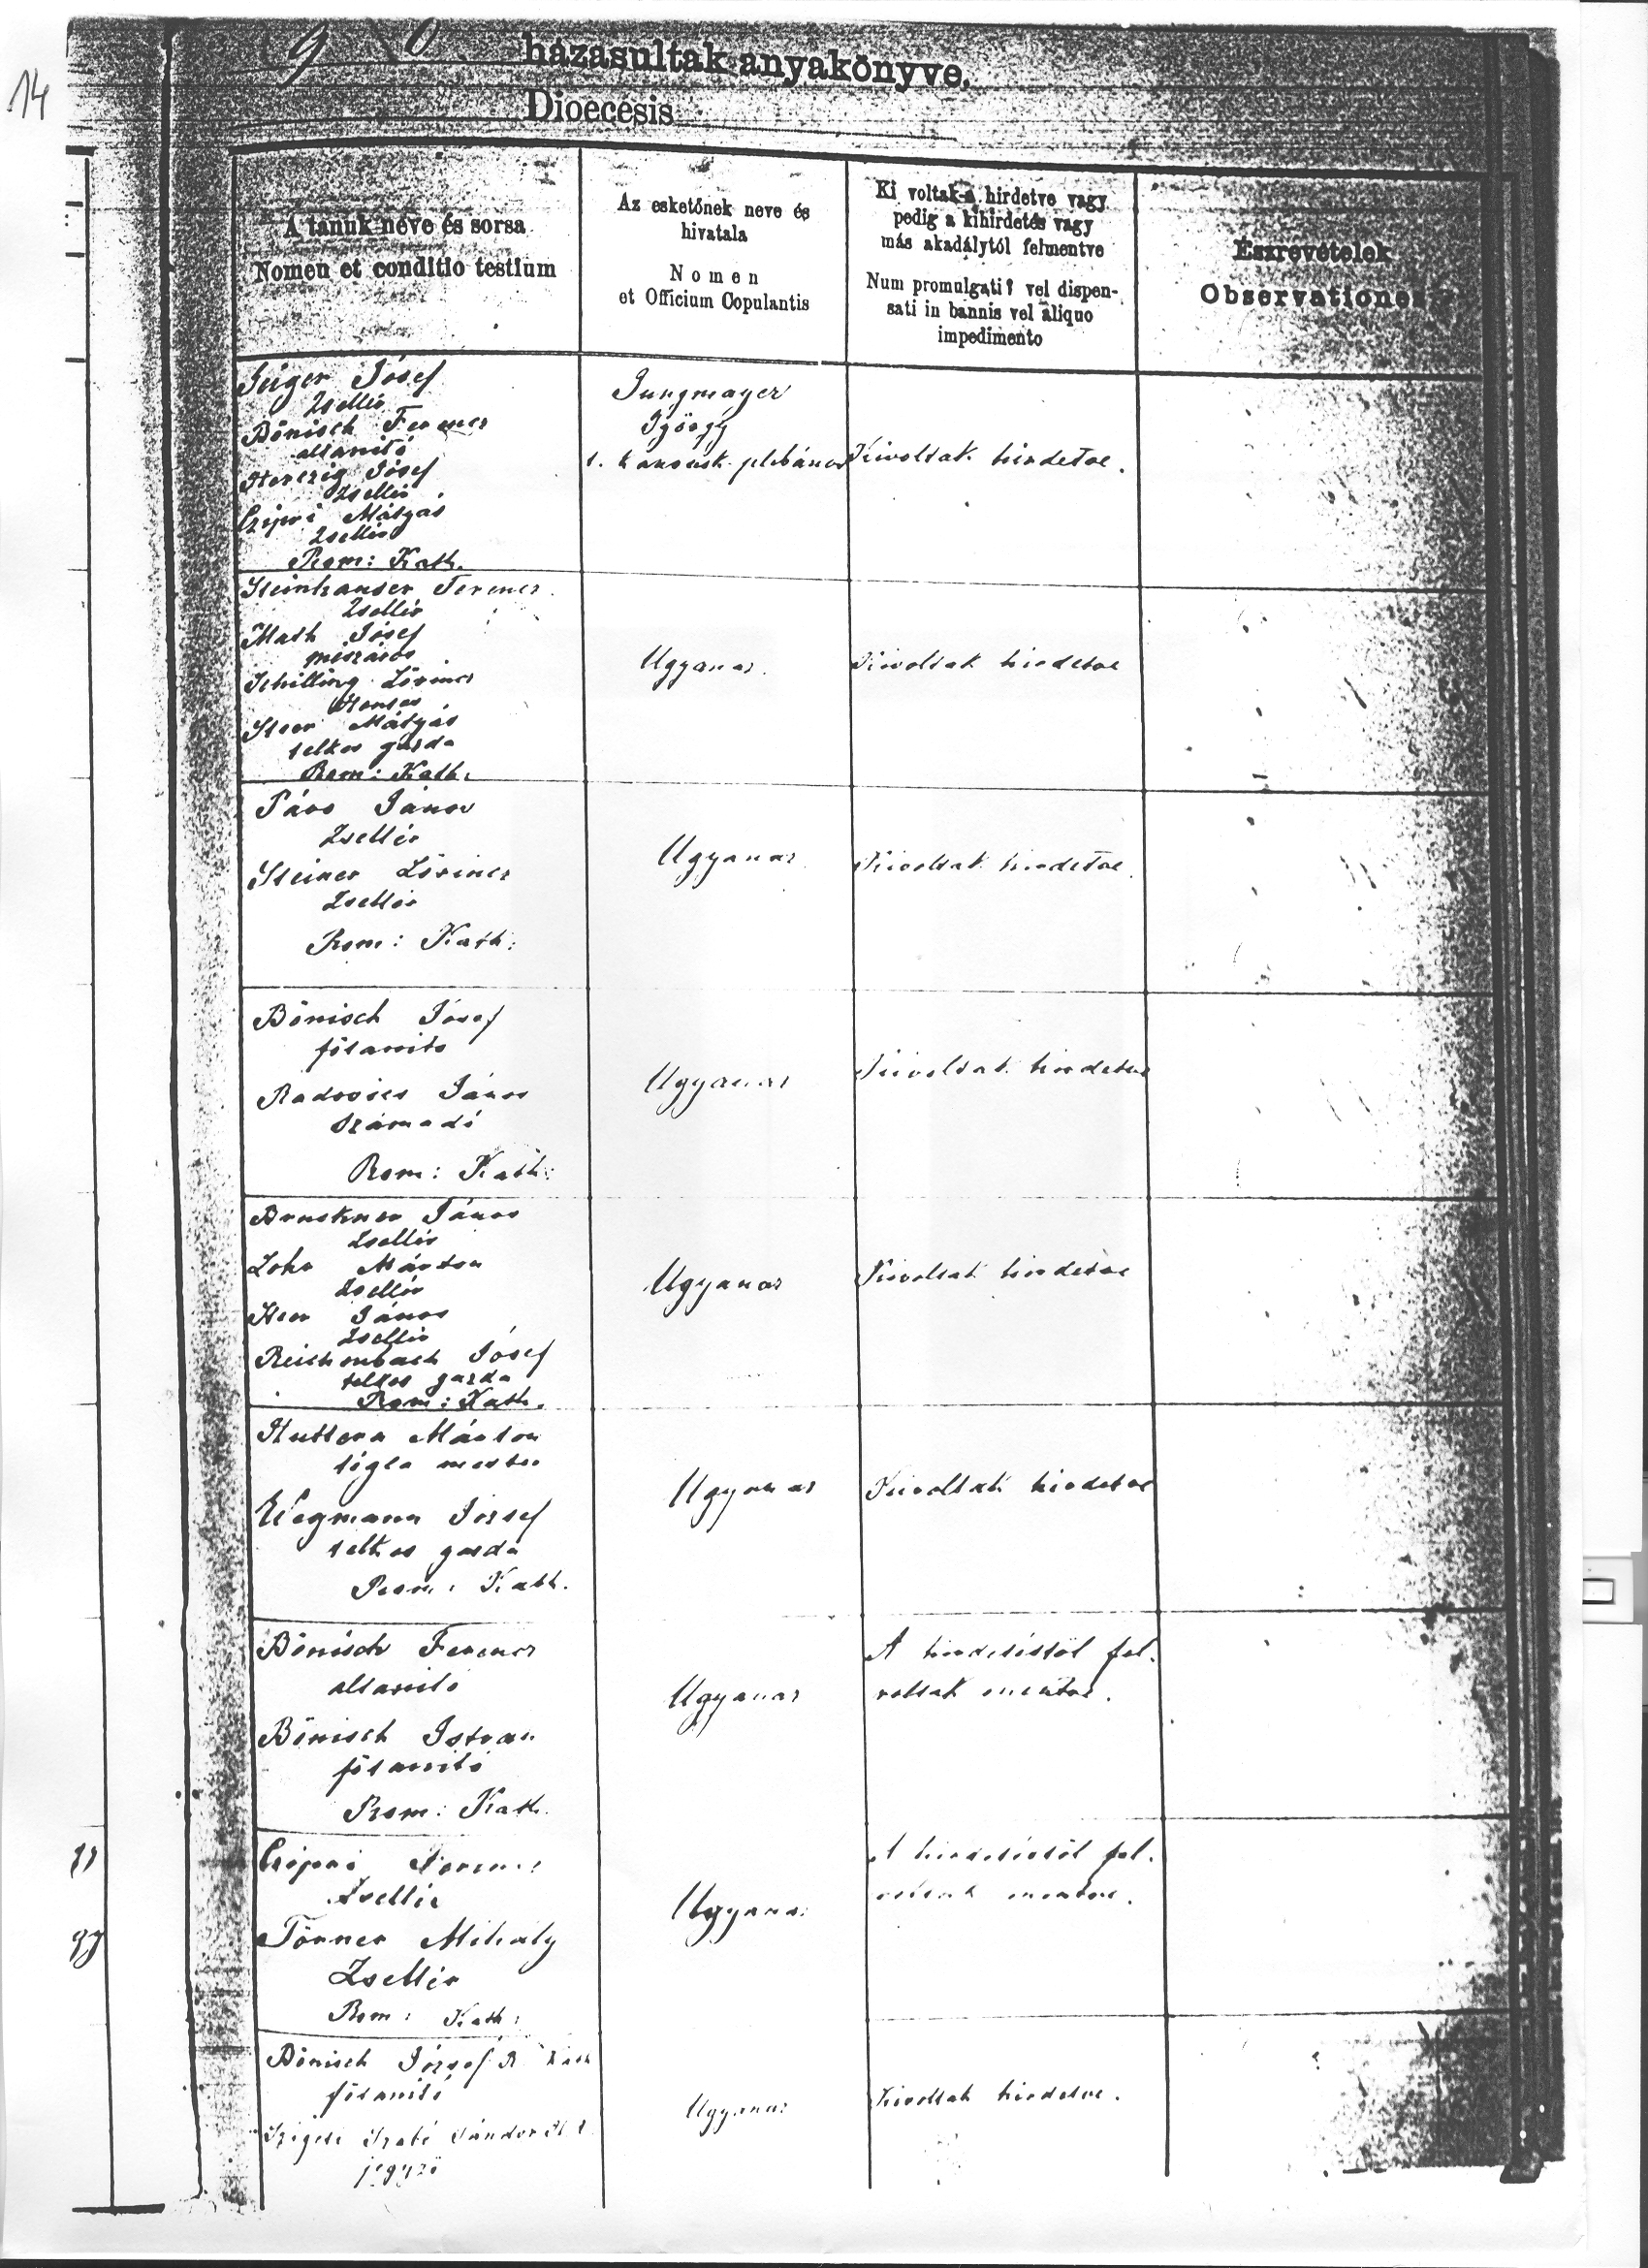 14
házasultak anyakönyve.
Dioecesis
A tanuk neve és sorsa
Nomen et conditio testium
Az esketőnek neve és
hivatala
Nomen
et Officium Copulantis
Ki voltak-e hirdetve vagy
pedig a kihirdetés vagy
más akadálytól felmentve
Num promulgati? vel dispen-
sati in bannis vel aliquo
impedimento
Észrevételek
Observationes
Geiger Jósef
Zsellér
Bönisch Ferencz
altanító
Jósef
Zsellér
Czipri Mátyás
Zsellér
Rom: Kath.
Jungmayer
György
t. kanonok plébános
Kivoltak hirdetve.
Steinhauser Ferencz
Zsellér
Math Jósef
mészáros
Schilling Lörincz
Mátyás
telkes gazda
Rom: Kath.
Ugyanaz.
Kivoltak hirdetve
János
Zsellér
Steiner Lörincz
Zsellér
Rom: Kath:
Ugyanaz
Kivoltak hirdetve.
Bönisch Jósef
főtanito
Radovics János
Számadó
Rom: Kath:
Ugyanaz
Kivoltak hirdetve
Bruckner János
Zsellér
Márton
Zsellér
János
Zsellér
Reichenbach Jósef
telkes gazda
Rom: Kath.
Ugyanaz
Kivoltak hirdetve
Huttera Márton
tégla mester
Wegmann József
telkes gazda
Rom: Kath.
Ugyanaz
Kivoltak hirdetve
Bönisch Ferencz
altanitó
Bönisch Istvan
főtanitó
Rom: Kath.
Ugyanaz
A hirdetéstöl fel.
voltak mentve.
Czipri Ferencz
Zsellér
Törner Mihály
Zsellér
Rom: Kath:
Ugyanaz
A hirdetéstöl fel.
voltak mentve.
Bönisch József R. Kath
főtanitó
Szigeti Szabó Sándor
jegyző
Ugyanaz
Kivoltak hirdetve.